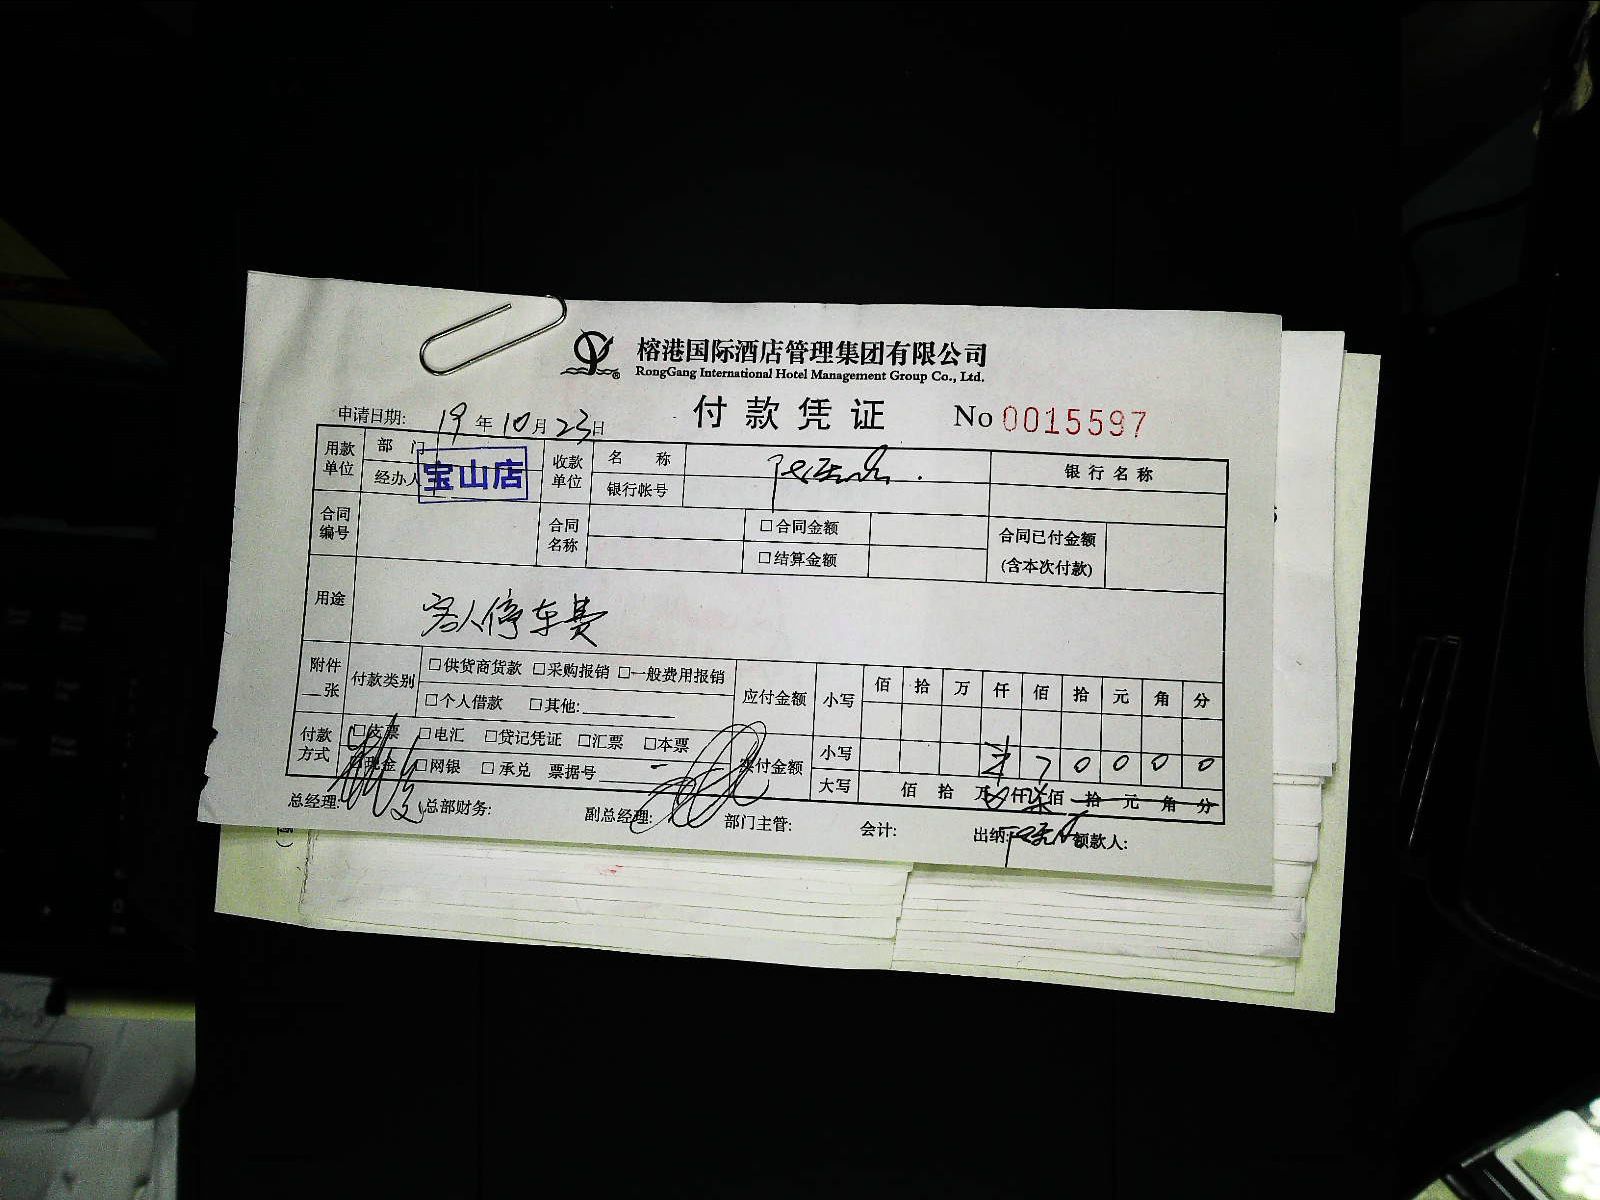 榕港国际酒店管理集团有限公司
RongGang International Hotel Management Group Co., Ltd.
付款凭证 No 0015597
申请日期: 19年10月23日
用款单位 部门 宝山店 收款单位 名称 银行名称
经办人 银行帐号
合同编号 合同名称 □合同金额 合同已付金额
□结算金额 (含本次付款)
用途 客人停车费
附件 张 付款类别 □供货商货款 □采购报销 □一般费用报销 应付金额 小写 佰 拾 万 仟 佰 拾 元 角 分
□个人借款 □其他:
付款方式 □支票 □电汇 □贷记凭证 □汇票 □本票 实付金额 小写 ¥ 7 0 0 0 0
现金 □网银 □承兑 票据号 大写 佰 拾 万 仟 柒 佰 拾 元 角 分
总经理: 总部财务: 副总经理: 部门主管: 会计: 出纳: 领款人: